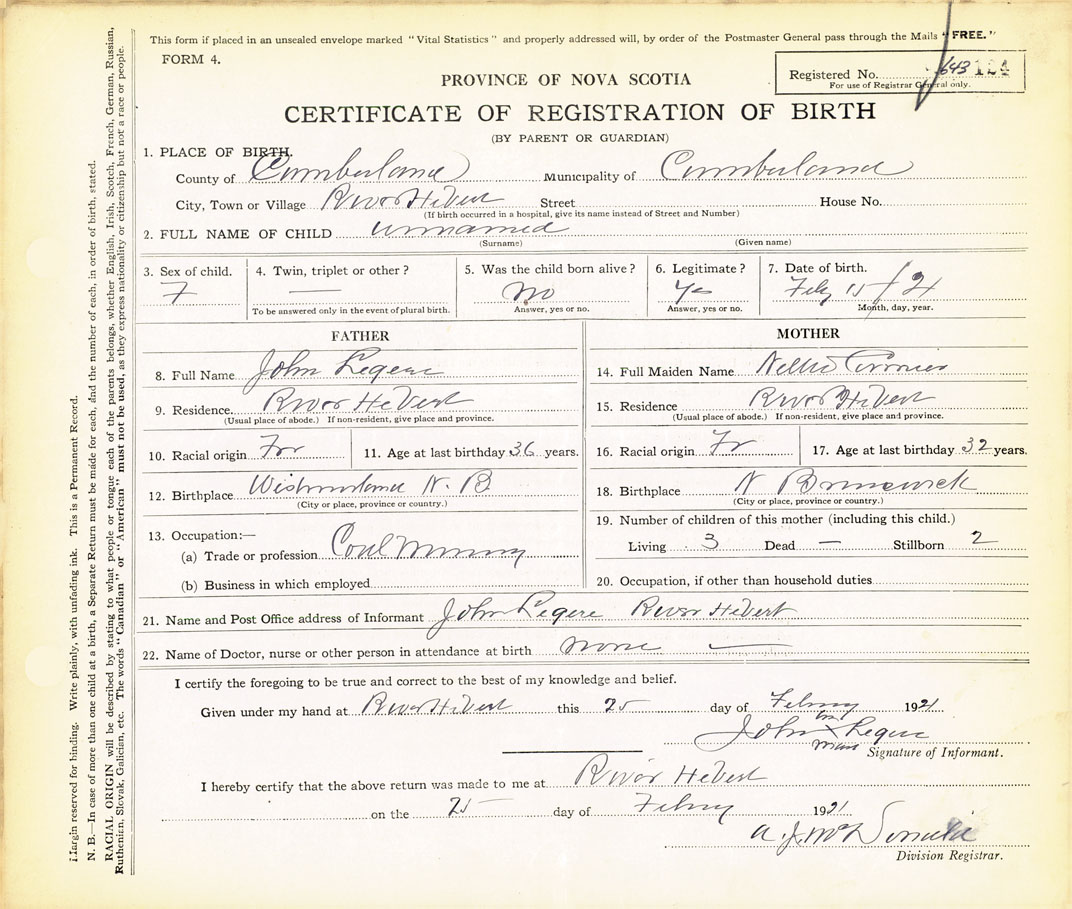 This form if placed in an unsealed envelope marked "Vital Statistics" and properly addressed will, by order of the Postmaster General pass through the Mails "FREE."
FORM 4.
Registered No. 643 124
For use of Registrar General only.
PROVINCE OF NOVA SCOTIA
CERTIFICATE OF REGISTRATION OF BIRTH
(BY PARENT OR GUARDIAN)
1. PLACE OF BIRTH,
County of Cumberland Municipality of Cumberland
City, Town or Village River Hebert Street House No.
(If birth occurred in a hospital, give its name instead of Street and Number)
2. FULL NAME OF CHILD unnamed
(Surname) (Given name)
3. Sex of child. 4. Twin, triplet or other? 5. Was the child born alive? 6. Legitimate? 7. Date of birth.
F — No Yes Feby 15 / 21
To be answered only in the event of plural birth. Answer, yes or no. Answer, yes or no. Month, day, year.
FATHER
8. Full Name John Legere
9. Residence. River Hebert
(Usual place of abode.) If non-resident, give place and province.
10. Racial origin Fr 11. Age at last birthday 36 years.
12. Birthplace N. B
(City or place, province or country.)
13. Occupation:—
(a) Trade or profession Coal Mining
(b) Business in which employed
MOTHER
14. Full Maiden Name Nellie
15. Residence River Hebert
(Usual place of abode.) If non-resident, give place and province.
16. Racial origin Fr 17. Age at last birthday 32 years.
18. Birthplace N Brunswick
(City or place, province or country.)
19. Number of children of this mother (including this child.)
Living 3 Dead — Stillborn 2
20. Occupation, if other than household duties
21. Name and Post Office address of Informant John Legere River Hebert
22. Name of Doctor, nurse or other person in attendance at birth none —
I certify the foregoing to be true and correct to the best of my knowledge and belief.
Given under my hand at River Hebert this 25 day of Febry 1921
John his X mark Legere
Signature of Informant.
I hereby certify that the above return was made to me at River Hebert
on the 25 day of Febry 1921
A. J. McDonald
Division Registrar.
Margin reserved for binding. Write plainly, with unfading ink. This is a Permanent Record.
N. B.—In case of more than one child at a birth, a Separate Return must be made for each, and the number of each, in order of birth, stated.
RACIAL ORIGIN will be described by stating to what people or tongue each of the parents belongs, whether English, Irish, Scotch, French, German, Russian,
Ruthenian, Slovak, Galician, etc. The words "Canadian" or "American" must not be used, as they express nationality or citizenship but not a race or people.